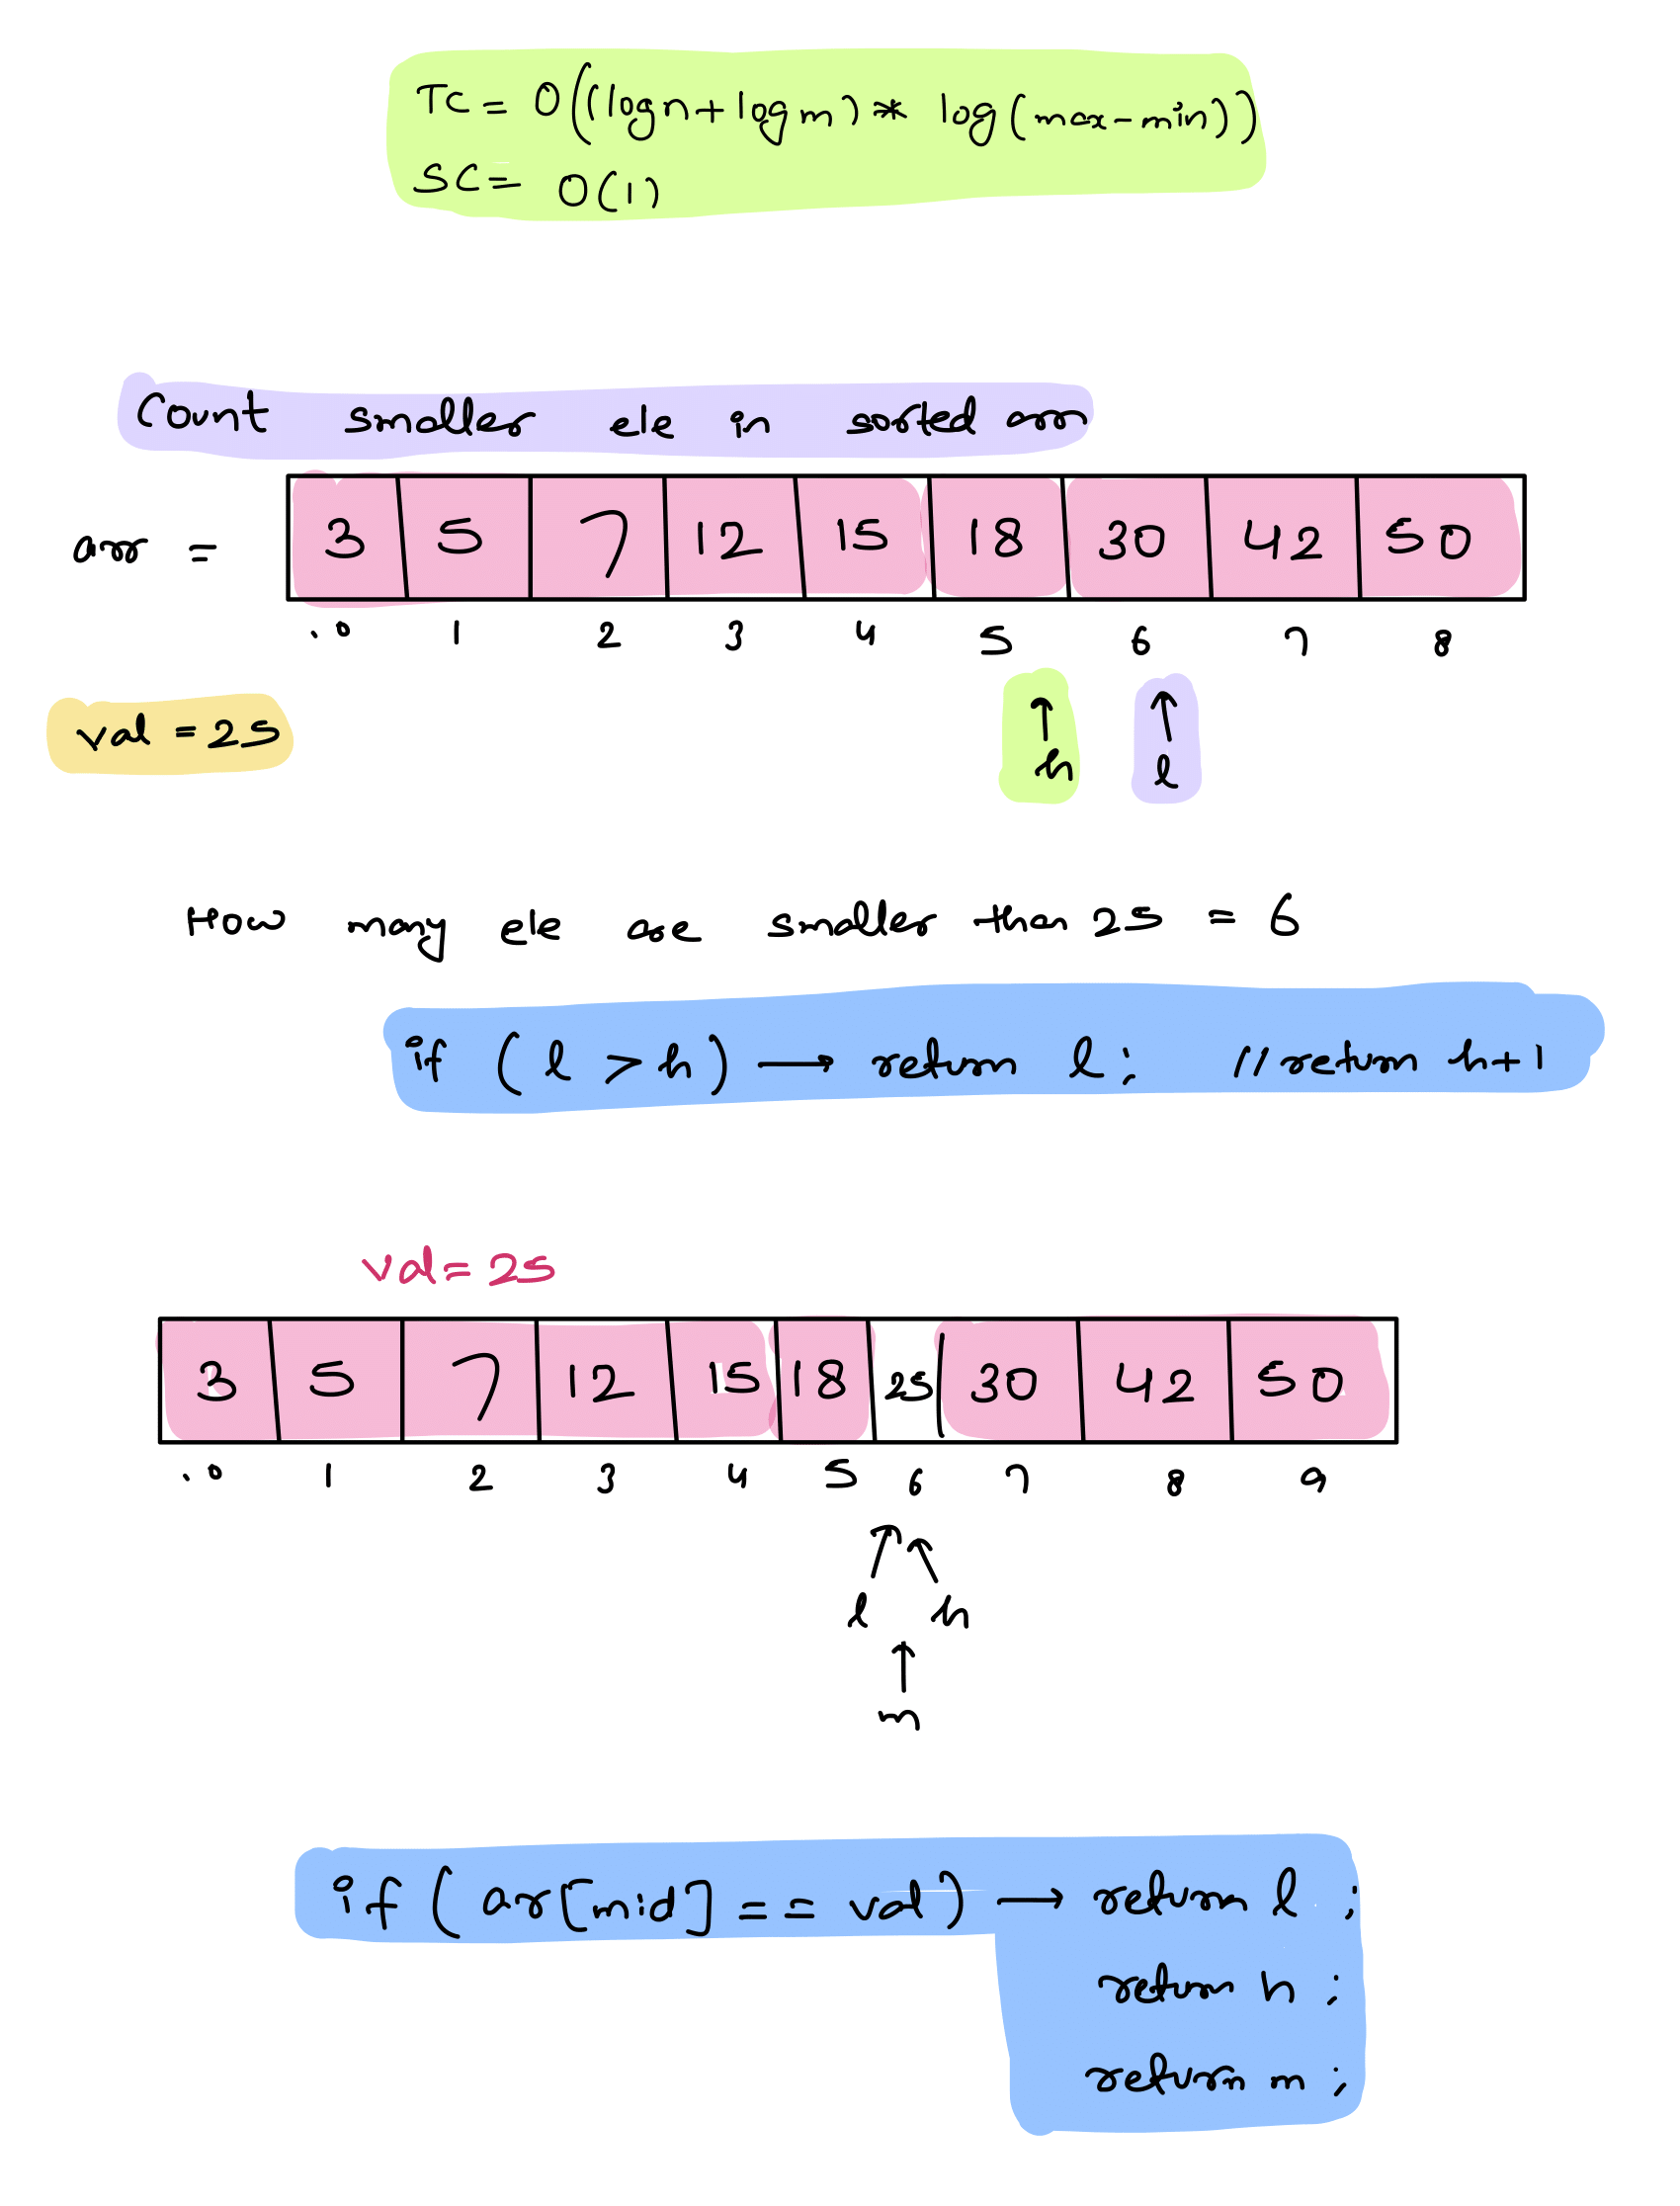 TC = O((logn+logm) * log(max-min))
SC = O(1)
Count smaller ele in sorted arr
arr = 3 5 7 12 15 18 30 42 50
0 1 2 3 4 5 6 7 8
val = 25
h l
How many ele are smaller than 25 = 6
if (l > h) → return l; //return h+1
val = 25
3 5 7 12 15 18 25 30 42 50
0 1 2 3 4 5 6 7 8 9
l h
m
if (arr[mid] == val) → return l ;
return h ;
return m ;